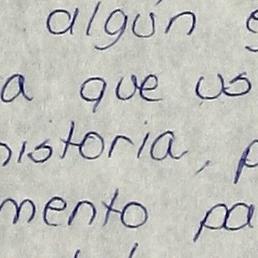 algún e
a que us
historia, p
mento pa